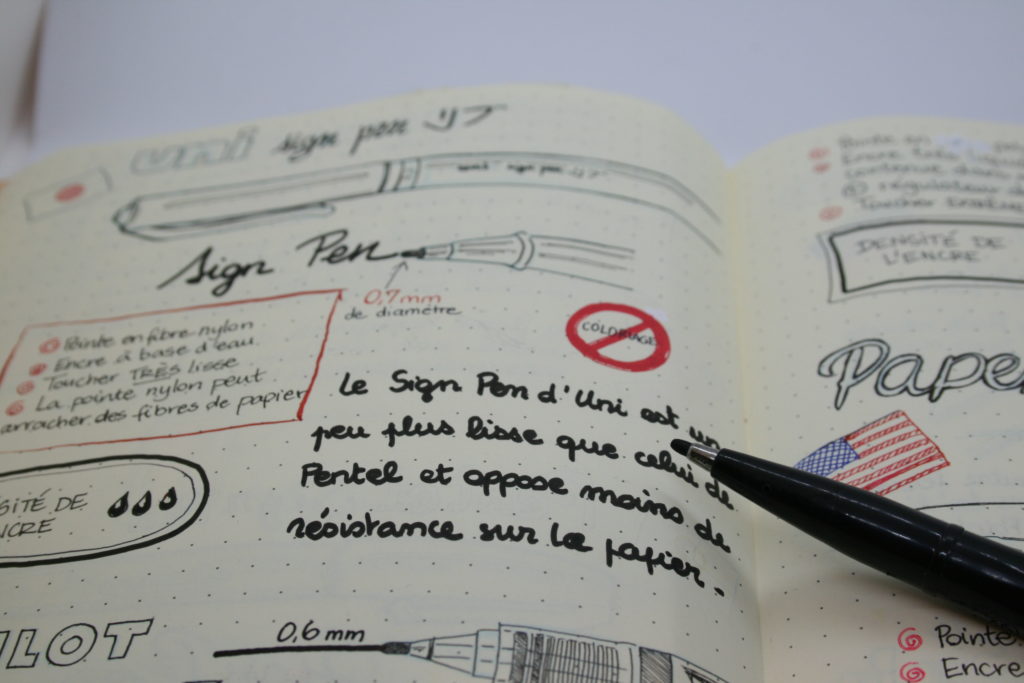 uni sign pen リブ
uni sign pen
Sign Pen
0,7mm
de diamètre
Pointe en fibre nylon
Encre à base d'eau
Toucher TRÈS lisse
La pointe nylon peut
arracher des fibres de papier
COLORIAGE
Le Sign Pen d'Uni est un
peu plus lisse que celui de
Pentel et oppose moins de
résistance sur le papier.
SITÉ DE
NCRE
LOT
0,6mm
Pointe en
Encre très
contenue dans
régulateur d
Toucher
DENSITÉ DE
L'ENCRE
Pape
Pointe
Encre